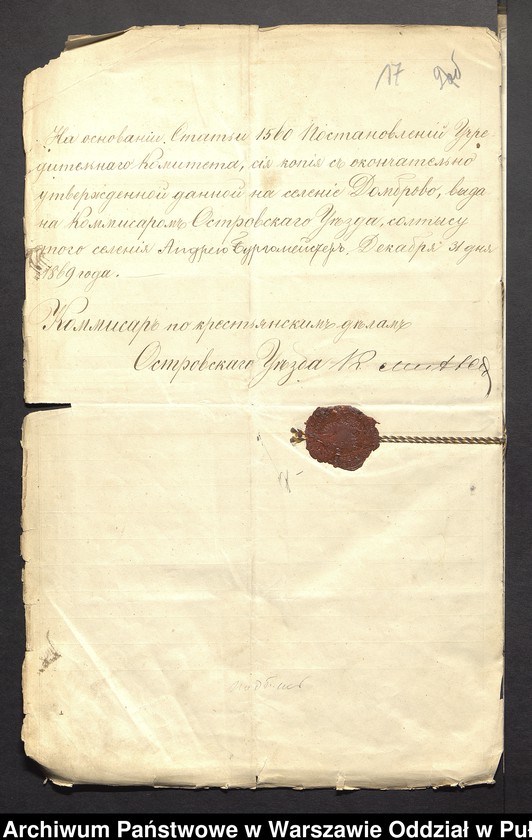 17
На основаніи Статьи 1560 Постановленій Учре
дительнаго Комитета, сія копія съ окончательно
утвержденной данной на селеніе Домброво, выда
на Коммисаромъ Островскаго Уѣзда, солтысу
этого селенія Андрею Бургомейстеръ, Декабря 31 дня
1869 года.
Коммисаръ по крестьянскимъ дѣламъ
Островскаго Уѣзда
Archiwum Państwowe w Warszawie Oddział w Puł